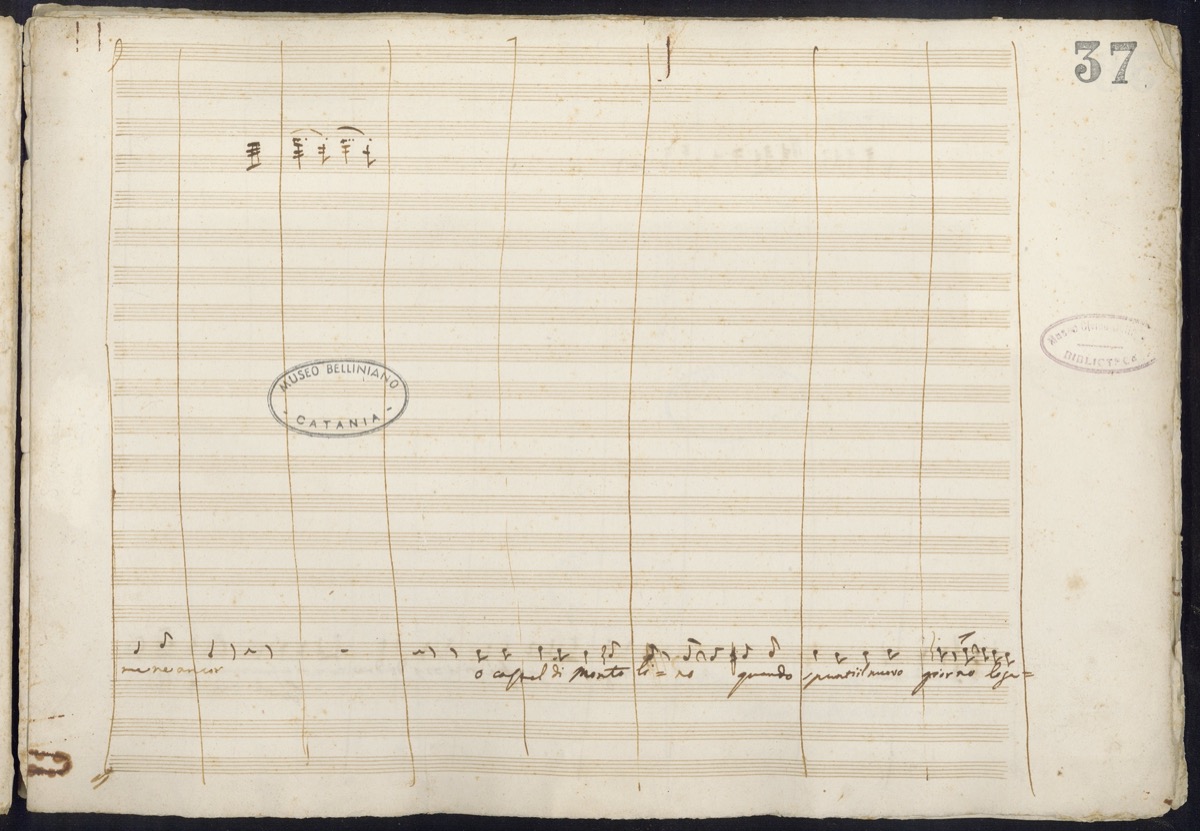 37
MUSEO BELLINIANO
CATANIA
BIBLIOTECA
me ne ancor o castel di monto li = no quando spunti il nuovo giorno